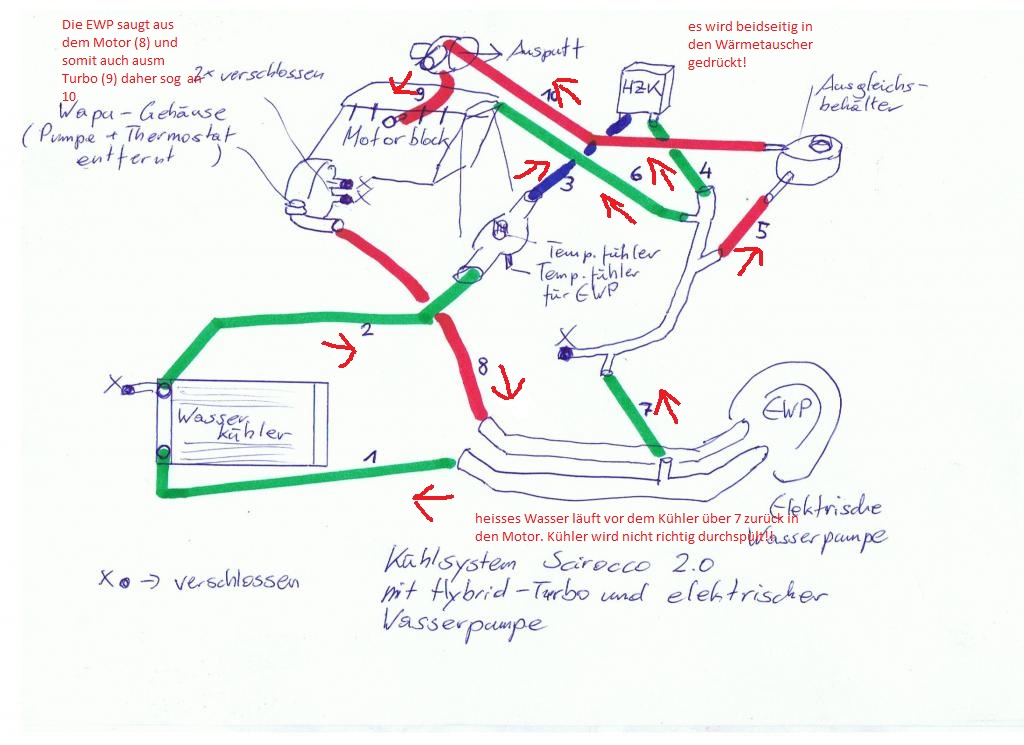 Die EWP saugt aus
dem Motor (8) und
somit auch ausm
Turbo (9) daher sog an
10
es wird beidseitig in
den Wärmetauscher
gedrückt!
Auspuff
2x verschlossen
HZK
Ausgleichs-
behälter
9
10
Wapu-Gehäuse
(Pumpe + Thermostat
entfernt )
Motorblock
X
X
3
6
4
5
Temp.fühler
Temp.fühler
für EWP
2
X
8
X
7
EWP
Wasser
kühler
1
Elektrische
Wasserpumpe
heisses Wasser läuft vor dem Kühler über 7 zurück in
den Motor. Kühler wird nicht richtig durchspült!
Kühlsystem Scirocco 2.0
mit Hybrid-Turbo und elektrischer
Wasserpumpe
X → verschlossen